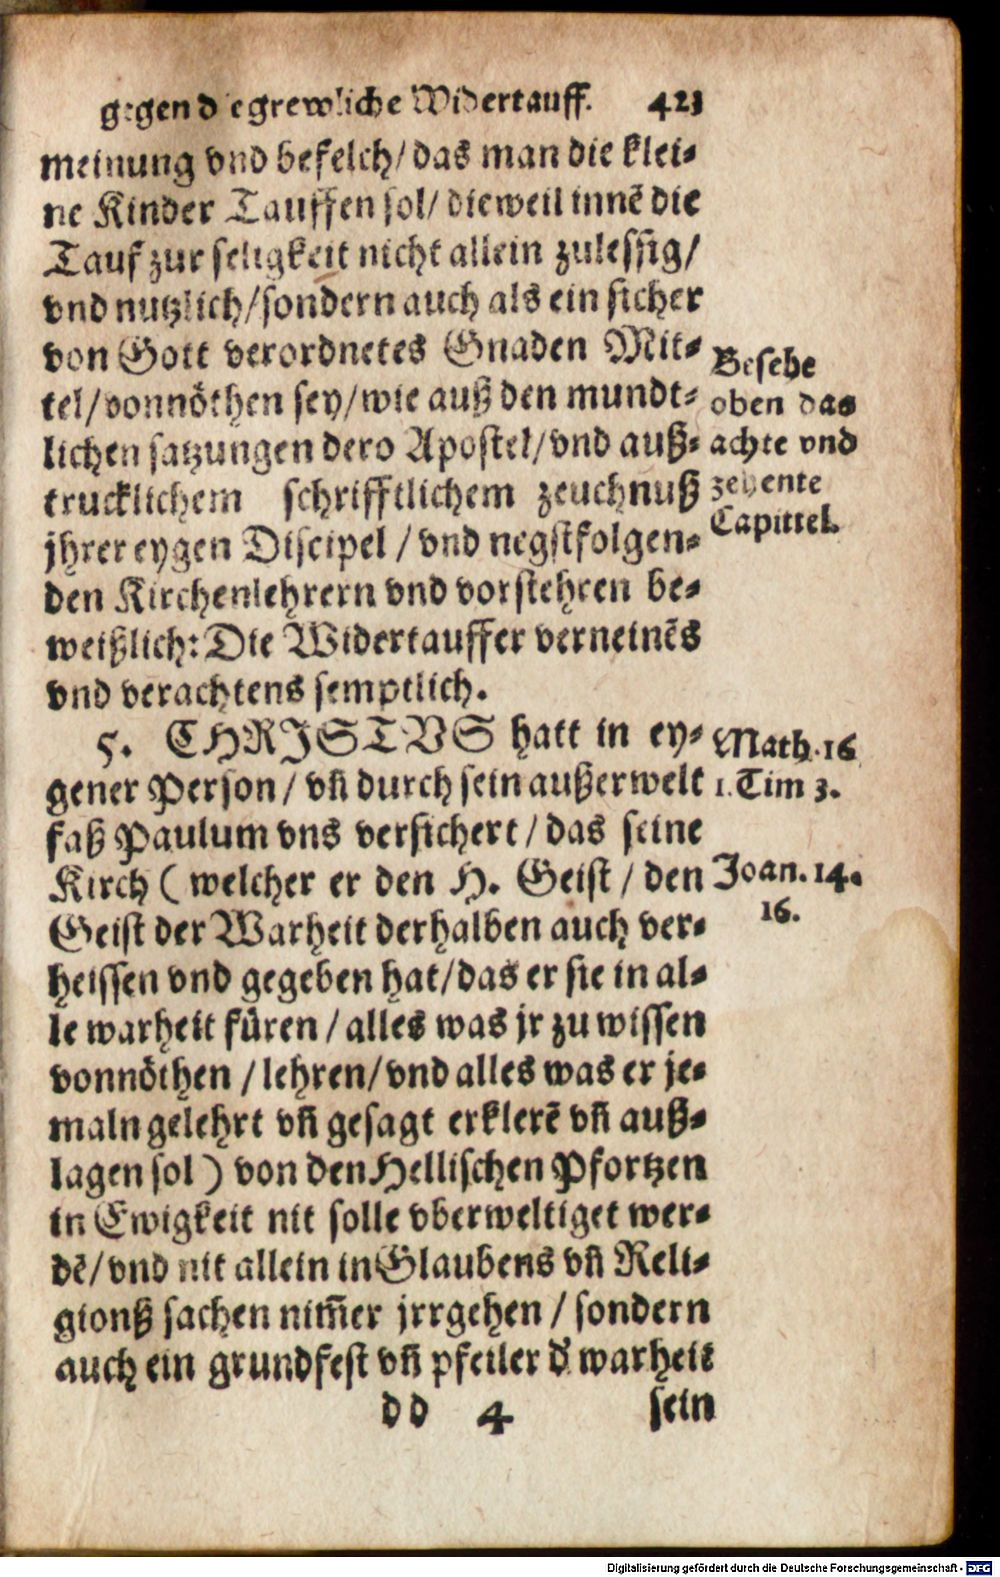 gegen die grewliche Widertauff. 423
meinung vnd befelch/das man die klei⸗
ne Kinder Tauffen sol/ dieweil innē die
Tauf zur seligkeit nicht allein zulessig/
vnd nutzlich/sondern auch als ein sicher
von Gott verordnetes Gnaden Mit⸗
tel/vonnöthen sey/wie auß den mundt⸗
lichen satzungen dero Apostel/vnd auß⸗
trucklichem schrifftlichem zeuchnuß
jhrer eygen Discipel / vnd negstfolgen⸗
den Kirchenlehrern vnd vorstehren be⸗
weißlich: Die Widertauffer verneinēs
vnd verachtens semptlich.
Besehe
oben das
achte vnd
zehente
Capittel.
5. CHRISTVS hatt in ey⸗
gener Person / vñ durch sein außerwelt
faß Paulum vns versichert / das seine
Kirch ( welcher er den H. Geist / den
Geist der Warheit derhalben auch ver⸗
heissen vnd gegeben hat/das er sie in al⸗
le warheit füren / alles was jr zu wissen
vonnöthen / lehren/vnd alles was er je⸗
maln gelehrt vñ gesagt erklerē vñ auß⸗
lagen sol ) von den Hellischen Pfortzen
in Ewigkeit nit solle vberweltiget wer⸗
dē/ vnd nit allein in Glaubens vñ Reli⸗
gionß sachen nim̄er jrrgehen / sondern
auch ein grundfest vñ pfeiler d' warheit
Math. 16
1. Tim 3.
Joan. 14.
16.
dd 4 sein
Digitalisierung gefördert durch die Deutsche Forschungsgemeinschaft - DFG